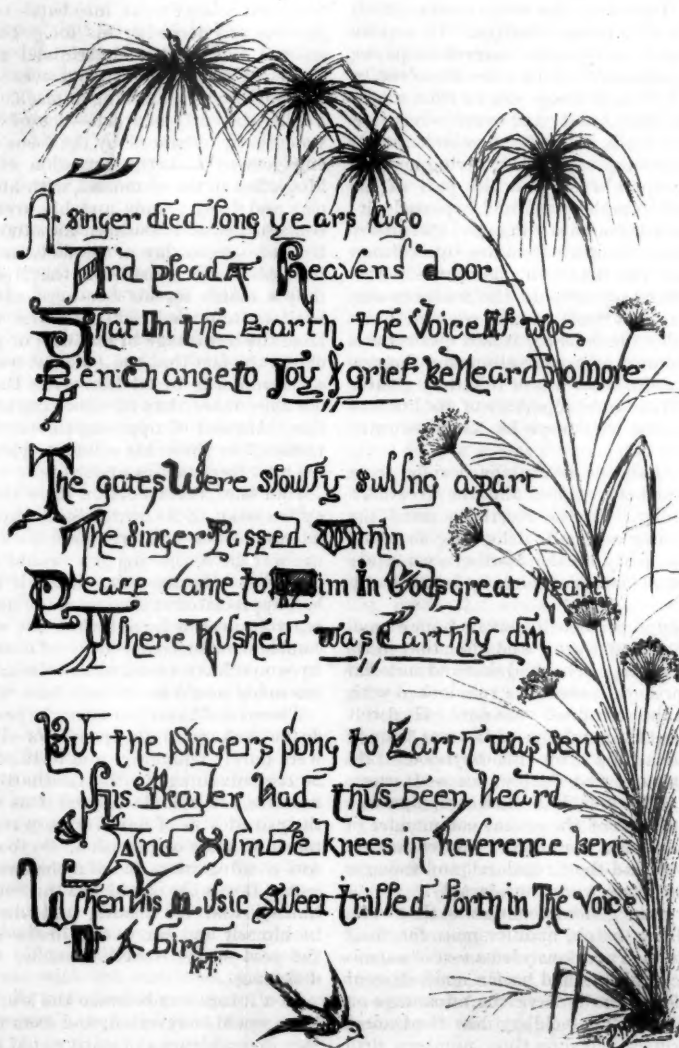 A Singer died long years Ago
And plead At Heavens door
That In the Earth the Voice Of woe
E'en Change to Joy & grief be Heard no more
The gates Were slowly swung apart
The Singer Passed Within
Peace came to Him in Gods great Heart
Where Hushed was Earthly din
But the Singers Song to Earth was sent
His Had thus been Heard
And Humble knees in Reverence bent
When his Music Sweet trilled forth in The Voice
Of A bird